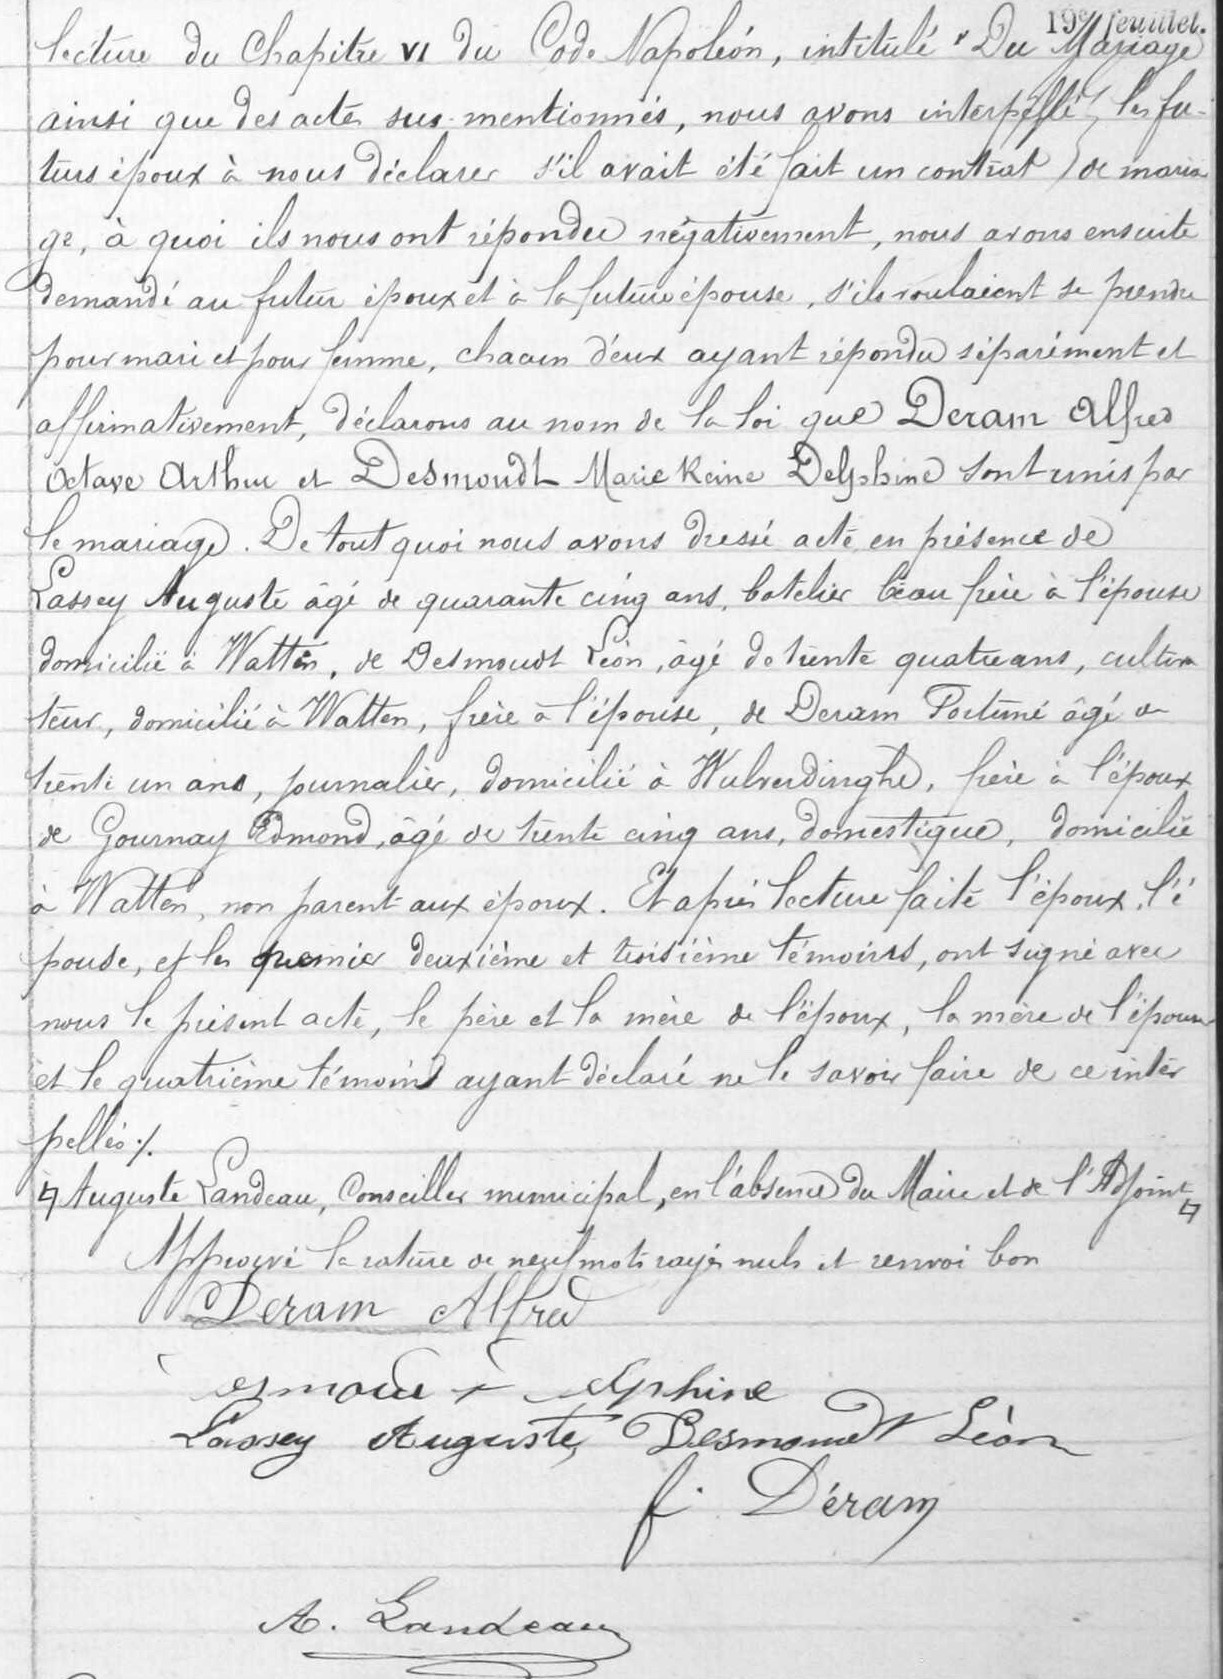 19e feuillet.
lecture du Chapitre VI du Code Napoléon, intitulé " Du Mariage
ainsi que des actes sus-mentionnés, nous avons interpellé les fu-
turs époux à nous déclarer s'il avait été fait un contrat de maria
ge, à quoi ils nous ont répondu négativement, nous avons ensuite
demandé au futur époux et à la future épouse, s'ils voulaient se prendre
pour mari et pour femme, chacun d'eux ayant répondu séparément et
affirmativement, déclarons au nom de la loi que Deram Alfred
Octave Arthur et Desmoudt Marie Reine Delphine sont unis par
le mariage. De tout quoi nous avons dressé acte en présence de
Lassey Auguste âgé de quarante cinq ans, batelier beau frère à l'épouse
domicilié à Watten, de Desmoudt Léon, âgé de trente quatre ans, cultiva
teur, domicilié à Watten, frère à l'épouse, de Deram Fortuné âgé de
trente un ans, journalier, domicilié à Wulverdinghe, frère à l'époux
de Gournay Edmond, âgé de trente cinq ans, domestique, domicilié
à Watten, non parent aux époux. Et après lecture faite l'époux, l'é
pouse, et les premier deuxième et troisième témoins, ont signé avec
nous le présent acte, le père et la mère de l'époux, la mère de l'épouse
et le quatrième témoins ayant déclaré ne le savoir faire de ce inter
pellés ./.
Auguste Landeau, Conseiller municipal, en l'absence du Maire et de l'Adjoint
Approuvé la rature de neuf mots rayés nuls et renvoi bon
Deram Alfred
Lassey Auguste, Desmoudt Léon
f. Déram
A. Landeau